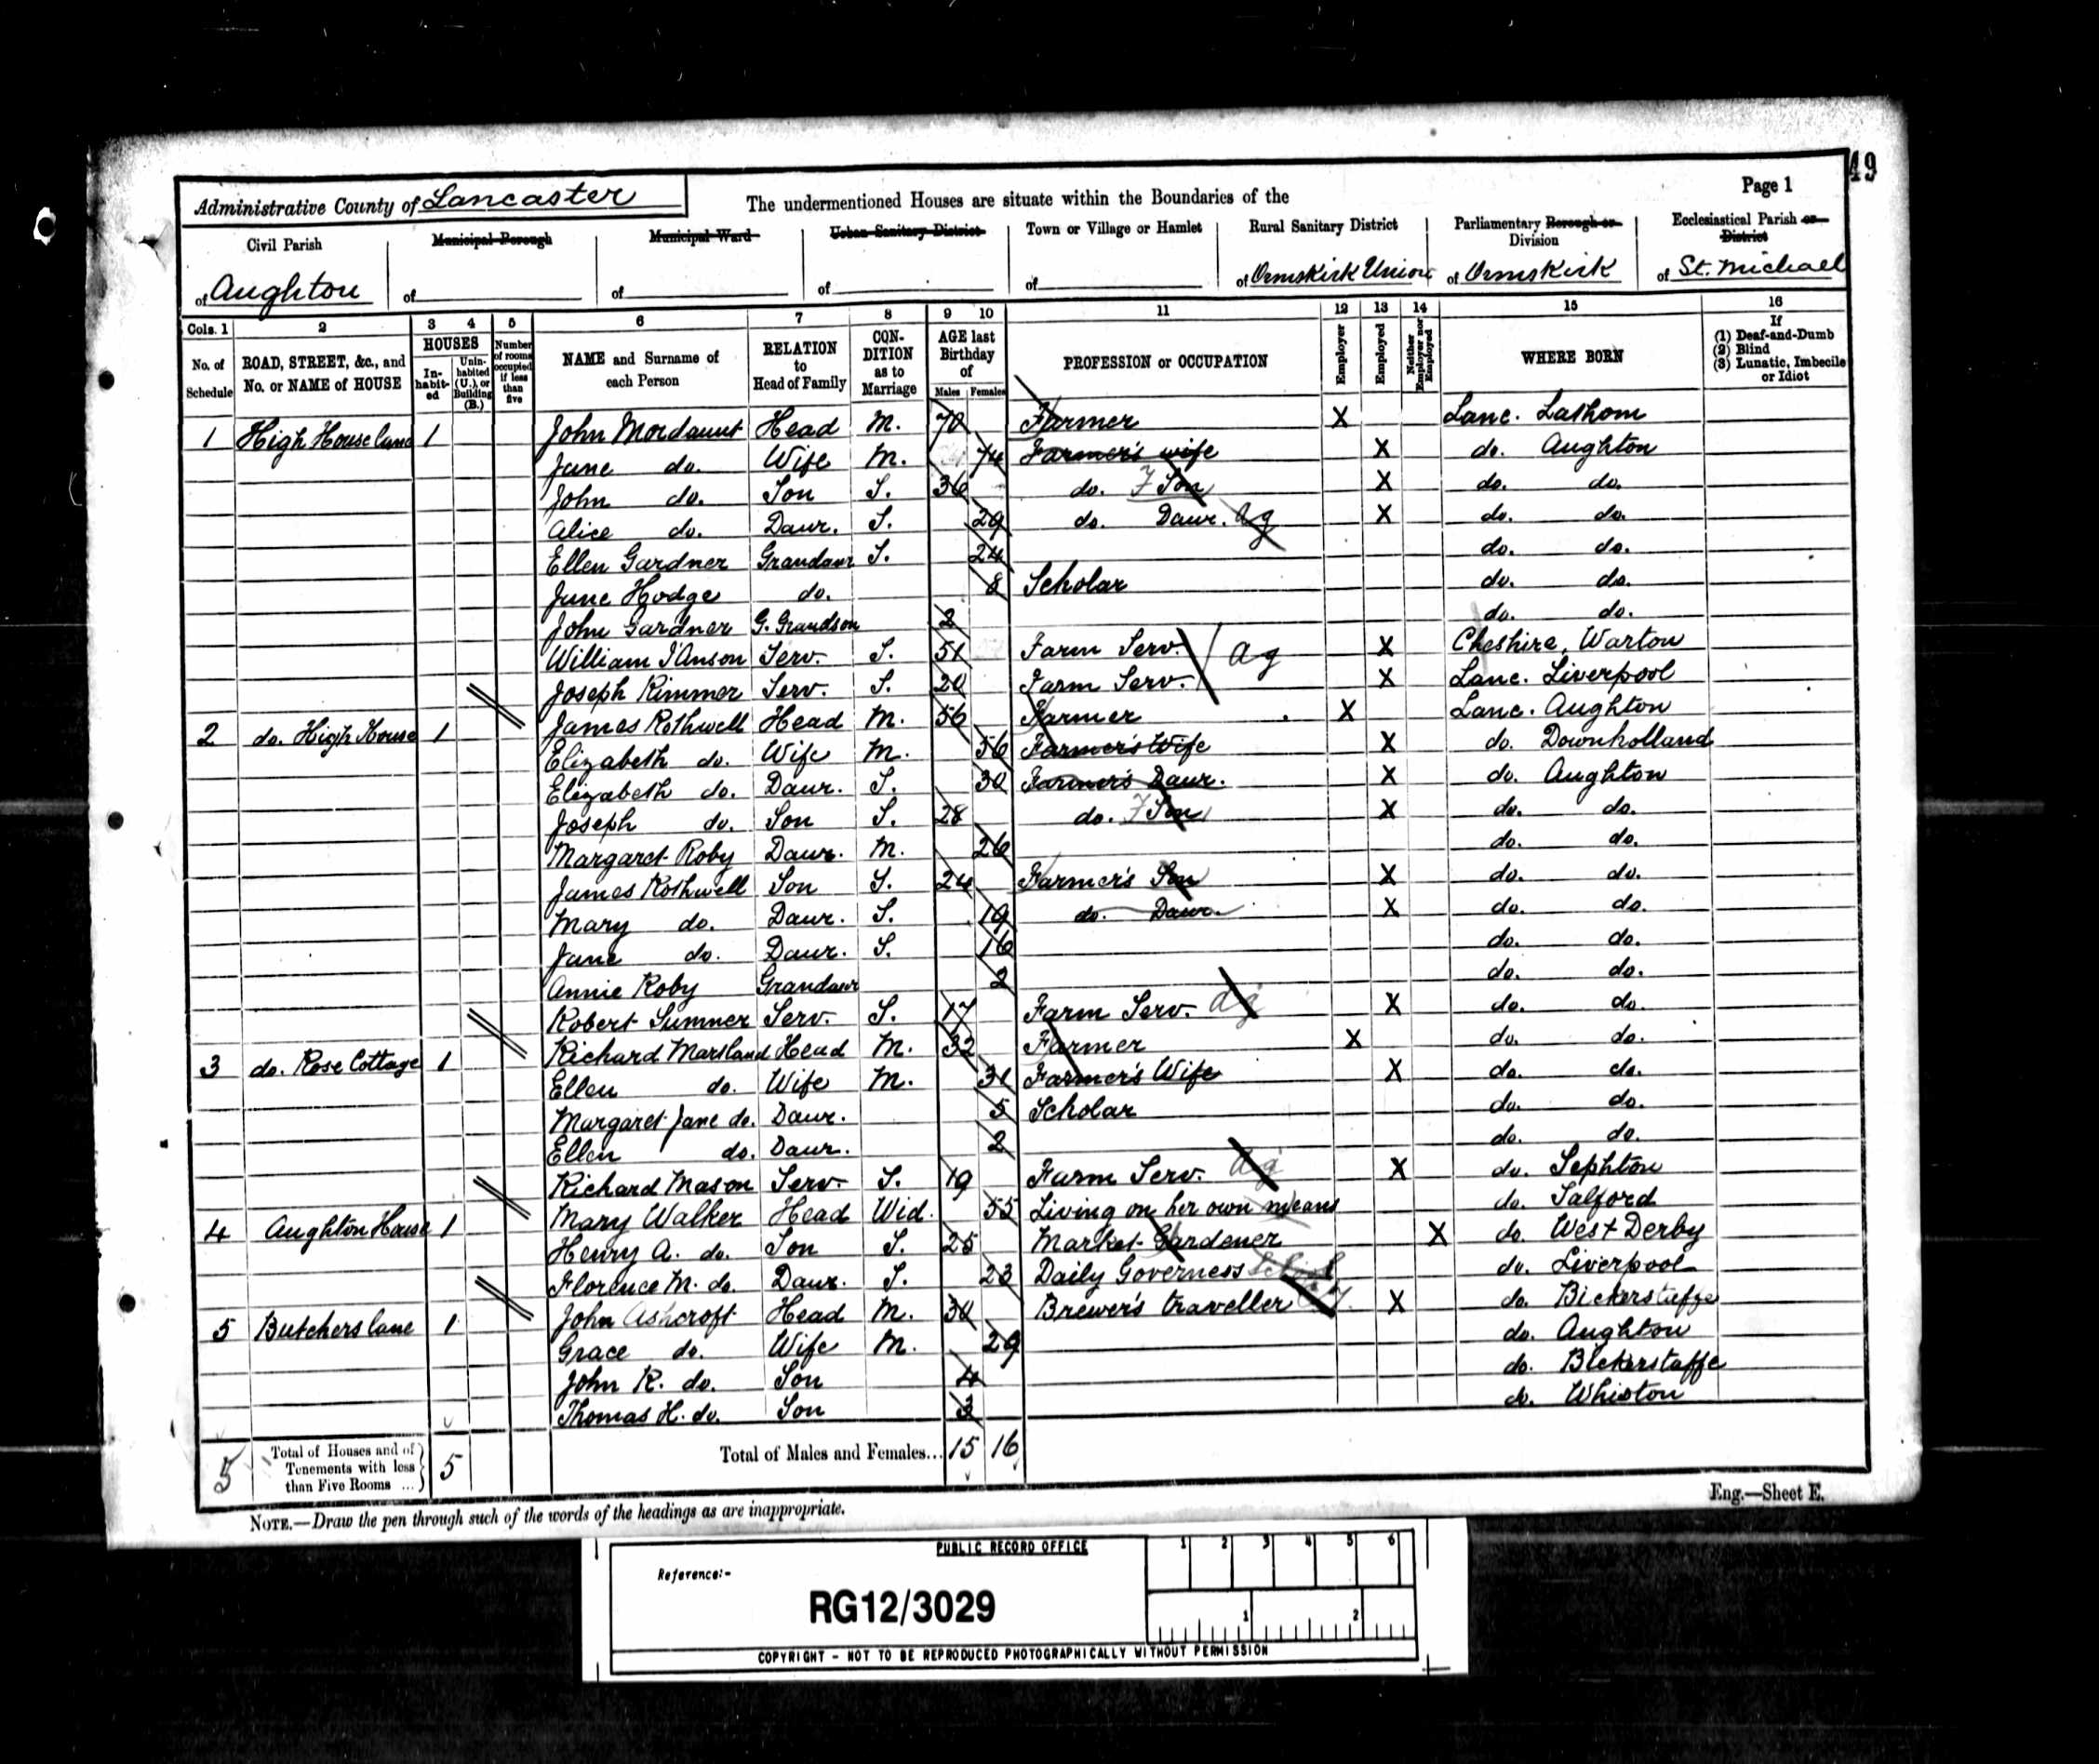 49
Page 1
Administrative County of Lancaster
The undermentioned Houses are situate within the Boundaries of the
Civil Parish of Aughton
Municipal Borough of
Municipal Ward of
Urban Sanitary District of
Town or Village or Hamlet of
Rural Sanitary District of Ormskirk Union
Parliamentary Borough or Division of Ormskirk
Ecclesiastical Parish or District of St. Michael
Cols. 1 2 3 4 5 6 7 8 9 10 11 12 13 14 15 16
No. of Schedule
ROAD, STREET, &c., and No. or NAME of HOUSE
HOUSES
In-habit-ed
Unin-habited (U.), or Building (B.)
Number of rooms occupied if less than five
NAME and Surname of each Person
RELATION to Head of Family
CON-DITION as to Marriage
AGE last Birthday of
Males Females
PROFESSION or OCCUPATION
Employer
Employed
Neither Employer nor Employed
WHERE BORN
If (1) Deaf-and-Dumb (2) Blind (3) Lunatic, Imbecile or Idiot
1 High House lane 1 John Mordaunt Head M. 70 Farmer X Lanc. Lathom
Jane do. Wife M. 74 Farmer's wife X do. Aughton
John do. Son S. 36 do. F Son X do. do.
Alice do. Daur. S. 29 do. Daur. Ag X do. do.
Ellen Gardner Grandaur S. 24 do. do.
Jane Hodge do. 8 Scholar do. do.
John Gardner G. Grandson 2 do. do.
William I'Anson Serv. S. 51 Farm Serv. Ag X Cheshire, Warton
Joseph Rimmer Serv. S. 20 Farm Serv. X Lanc. Liverpool
2 do. High House 1 James Rothwell Head M. 56 Farmer X Lanc. Aughton
Elizabeth do. Wife M. 56 Farmer's Wife X do. Downholland
Elizabeth do. Daur. S. 30 Farmer's Daur. X do. Aughton
Joseph do. Son S. 28 do. F Son X do. do.
Margaret Roby Daur. M. 26 do. do.
James Rothwell Son S. 24 Farmer's Son X do. do.
Mary do. Daur. S. 19 do. Daur. X do. do.
Jane do. Daur. S. 16 do. do.
Annie Roby Grandaur 2 do. do.
Robert Sumner Serv. S. 17 Farm Serv. Ag X do. do.
3 do. Rose Cottage 1 Richard Marsland Head M. 32 Farmer X do. do.
Ellen do. Wife M. 31 Farmer's Wife X do. do.
Margaret Jane do. Daur. 5 Scholar do. do.
Ellen do. Daur. 2 do. do.
Richard Mason Serv. S. 19 Farm Serv. Ag X do. Sephton
4 Aughton House 1 Mary Walker Head Wid. 55 Living on her own means do. Salford
Henry A. do. Son S. 25 Market Gardener X do. West Derby
Florence M. do. Daur. S. 23 Daily Governess School do. Liverpool
5 Butchers lane 1 John Ashcroft Head M. 30 Brewer's traveller X do. Bickerstaffe
Grace do. Wife M. 29 do. Aughton
John R. do. Son 4 do. Bickerstaffe
Thomas H. do. Son 3 do. Whiston
5 Total of Houses and of Tenements with less than Five Rooms ... 5 Total of Males and Females... 15 16
NOTE.—Draw the pen through such of the words of the headings as are inappropriate.
Eng.—Sheet E.
PUBLIC RECORD OFFICE
1 2 3 4 5 6
Reference:-
RG12/3029
1 2
COPYRIGHT - NOT TO BE REPRODUCED PHOTOGRAPHICALLY WITHOUT PERMISSION